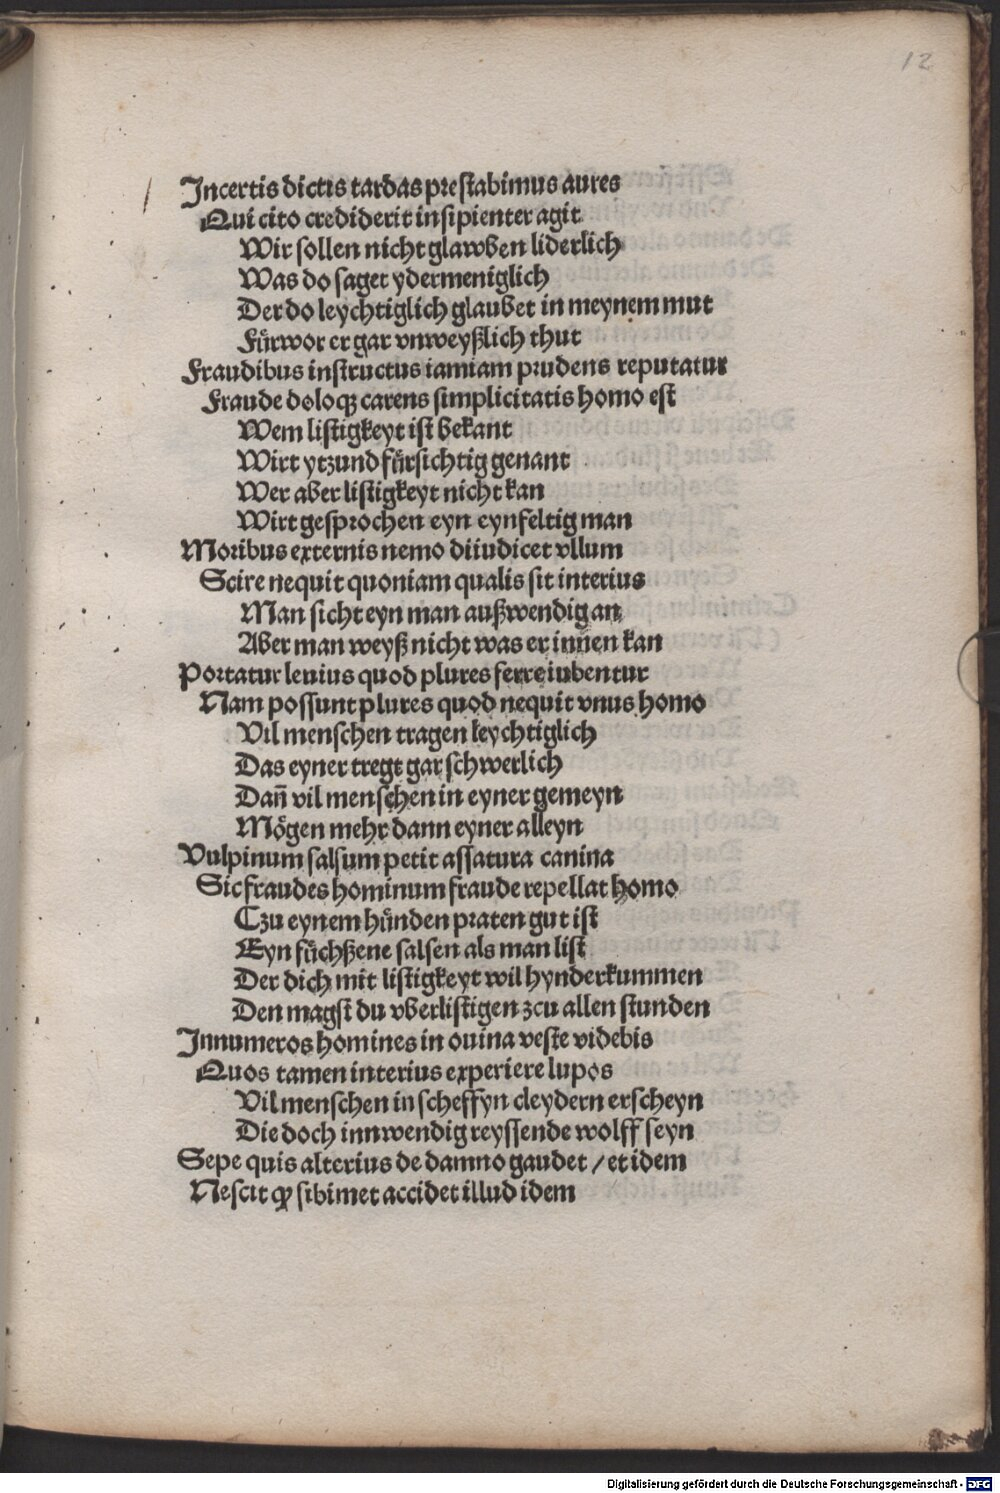 12
Incertis dictis tardas prestabimus aures
Qui cito crediderit insipienter agit
Wir sollen nicht glawben liderlich
Was do saget ydermeniglich
Der do leychtiglich glaubet in meynem mut
Fürwor er gar vnweyßlich thut
Fraudibus instructus iamiam prudens reputatur
Fraude doloqꝫ carens simplicitatis homo est
Wem listigkeyt ist bekant
Wirt ytzund fürsichtig genant
Wer aber listigkeyt nicht kan
Wirt gesprochen eyn eynfeltig man
Moribus externis nemo diiudicet vllum
Scire nequit quoniam qualis sit interius
Man sicht eyn man außwendig an
Aber man weyß nicht was er innen kan
Portatur leuius quod plures ferre iubentur
Nam possunt plures quod nequit vnus homo
Vil menschen tragen leychtiglich
Das eyner tregt gar schwerlich
Dañ vil menschen in eyner gemeyn
Mögen mehr dann eyner alleyn
Vulpinum salsum petit assatura canina
Sic fraudes hominum fraude repellat homo
Czu eynem hünden praten gut ist
Eyn füchßene salsen als man list
Der dich mit listigkeyt wil hynderkummen
Den magst du vberlistigen zcu allen stunden
Innumeros homines in ouina veste videbis
Quos tamen interius experiere lupos
Vil menschen in scheffyn cleydern erscheyn
Die doch innwendig reyssende wolff seyn
Sepe quis alterius de damno gaudet / et idem
Nescit ꝙ sibimet accidet illud idem
Digitalisierung gefördert durch die Deutsche Forschungsgemeinschaft - DFG